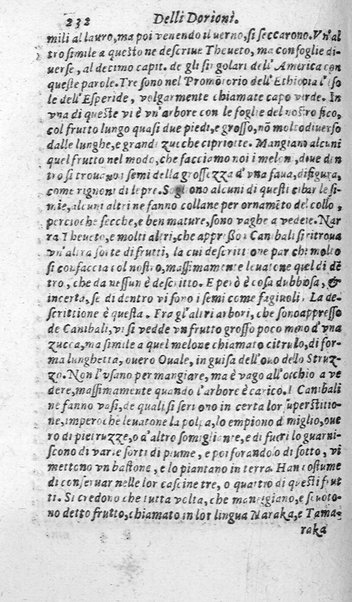 232 Delli Dorioni.
mili al lauro, ma poi venendo il verno, si seccarono. Vn'al
tro simile a questo ne descriue Theueto, ma con foglie di-
uerse, al decimo capit. de gli singolari dell'America con
queste parole. Tre sono nel Promotorio dell'Ethiopia l'iso
le dell'Esperide, volgarmente chiamate capo virde. In
vna di queste vi è vn'arbore con le foglie del nostro fico,
col frutto lungo quasi due piedi, e grosso, nō molto diuerso
dalle lunghe, e grandi zucche cipriotte. Mangiano alcuni
quel frutto nel modo, che facciamo noi i meloni, dúe den
tro si trouano i semi della grossezza d'vna faua, di figura,
come rignoni di lepre. Sogliono alcuni di questi cibar le si-
mie, alcuni altri ne fanno collane per ornamēto del collo,
percioche secche, e ben mature, sono vaghe a vedere. Nar
ra Theueto, e molti altri, che appresso i Canibali si ritroua
vn'altra sorte di frutti, la cui descrittione par chi molto
si confaccia col nostro, massimamente leuatone quel di dē
tro, che da nessun'è descritto. E però è cosa dubbiosa, &
incerta, se di dentro vi sono i semi come fagiuoli. La de-
scrittione è questa. Fra gl'altri arbori, che sono appresso
de Canibali, vi si vedde vn frutto grosso poco meno d'vna
zucca, ma simile a quel melone chiamato citrulo, di for
ma lunghetta, ouero Ouale, in guisa dell'ouo dello Struz-
zo. Non l'vsano per mangiare, ma è vago all'occhio a ve
dere, massimamente quando l'arbore è carico. I Canibali
ne fanno vasi, de quali si seruono in certa lor superstitio-
ne, imperoche leuatone la polpa, lo empiono di miglio, oue
ro di pietruzze, o d'altro somigliante, e di fuori lo guarni-
scono di varie sorti di piume, e poi forandolo di sotto, vi
mettono vn bastone, e lo piantano in terra. Han costume
di conseruare nelle lor cascine tre, o quattro di questi frut
ti. Si credono che tutta volta, che maneggiano, e scuoto-
no detto frutto, chiamato in lor lingua Naraka, e Tama-
raka